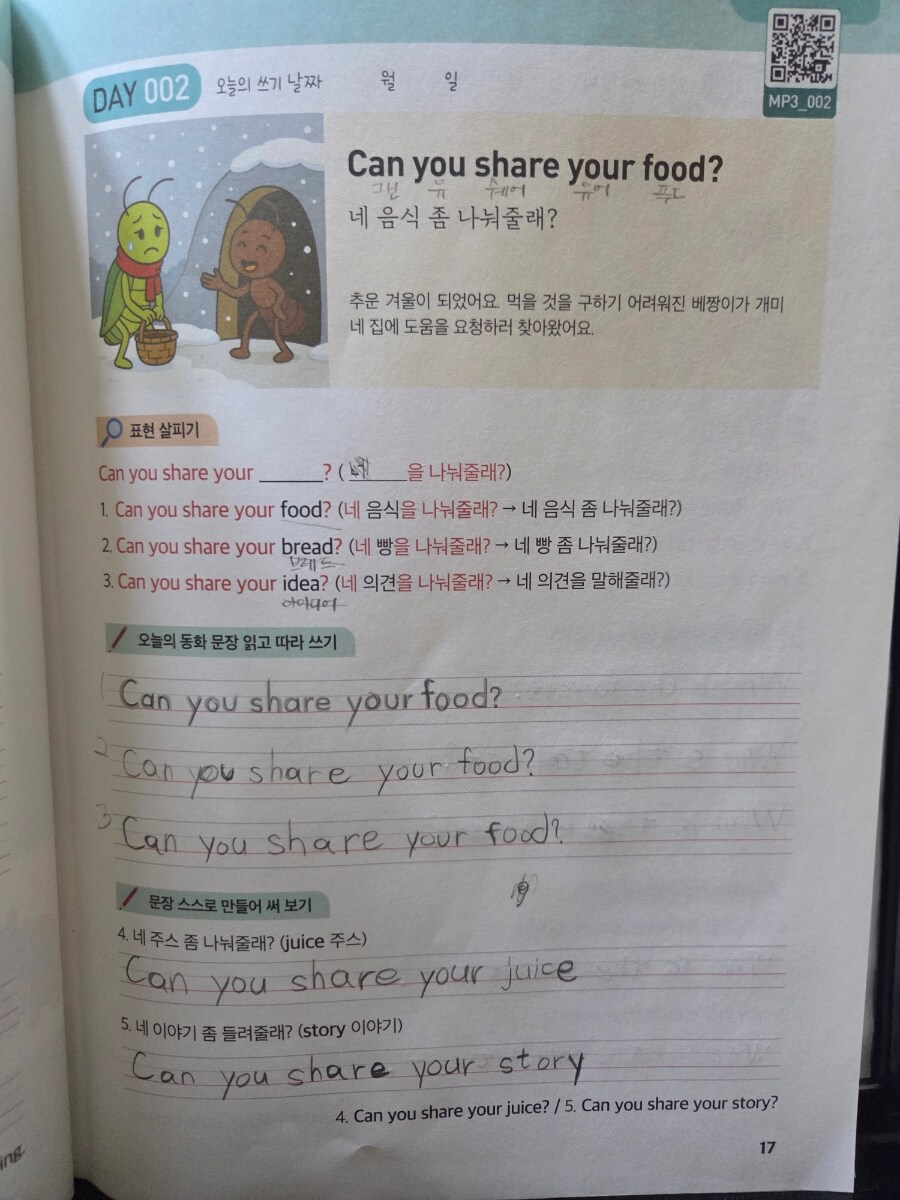 DAY 002 오늘의 쓰기 날짜 월 일
MP3_002
Can you share your food?
캔 유 쉐어 유어 푸드
네 음식 좀 나눠줄래?
추운 겨울이 되었어요. 먹을 것을 구하기 어려워진 베짱이가 개미
네 집에 도움을 요청하러 찾아왔어요.
표현 살피기
Can you share your ______? (네 ____을 나눠줄래?)
1. Can you share your food? (네 음식을 나눠줄래? → 네 음식 좀 나눠줄래?)
2. Can you share your bread? (네 빵을 나눠줄래? → 네 빵 좀 나눠줄래?)
브레드
3. Can you share your idea? (네 의견을 나눠줄래? → 네 의견을 말해줄래?)
아이디어
오늘의 동화 문장 읽고 따라 쓰기
1 Can you share your food?
2 Can you share your food?
3 Can you share your food?
문장 스스로 만들어 써 보기
4. 네 주스 좀 나눠줄래? (juice 주스)
Can you share your juice
5. 네 이야기 좀 들려줄래? (story 이야기)
Can you share your story
4. Can you share your juice? / 5. Can you share your story?
ing.
17